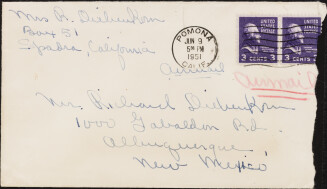 Mrs R. Diebenkorn
Box 51
Spadra, California
POMONA
JUN 9
5 PM
1951
CALIF.
UNITED STATES POSTAGE
3 CENTS 3
UNITED STATES POSTAGE
3 CENTS 3
Airmail
Airmail
Mr. Richard Diebenkorn
1000 Gabaldon Rd.
Albuquerque,
New Mexico